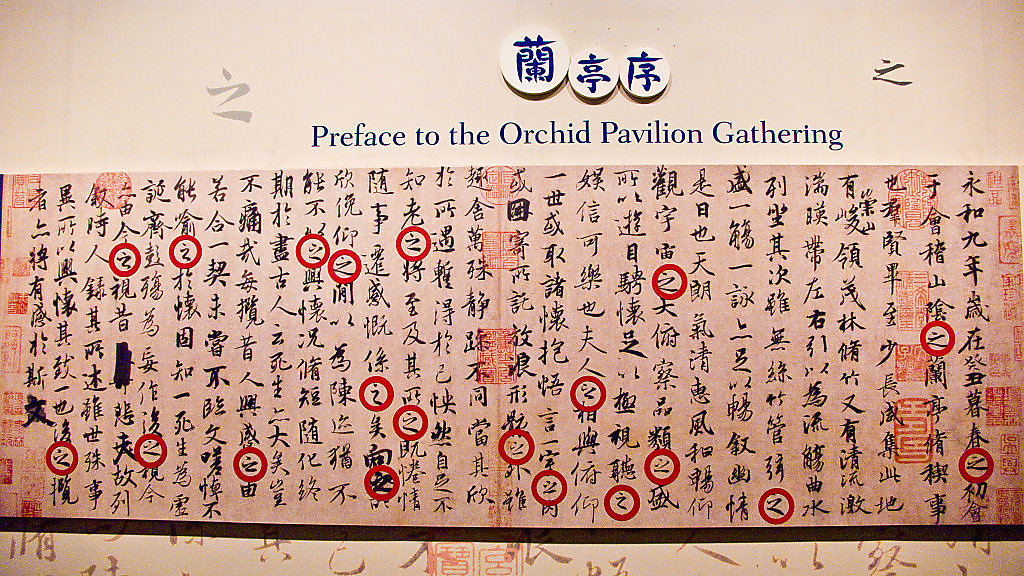 蘭亭序
之
之
Preface to the Orchid Pavilion Gathering
永和九年歲在癸丑暮春之初會
于會稽山陰之蘭亭脩稧事
也群賢畢至少長咸集此地
有崇山峻領茂林脩竹又有清流激
湍暎帶左右引以為流觴曲水
列坐其次雖無絲竹管弦之
盛一觴一詠亦足以暢叙幽情
是日也天朗氣清惠風和暢仰
觀宇宙之大俯察品類之盛
所以遊目騁懷足以極視聽之
娛信可樂也夫人之相與俯仰
一世或取諸懷抱悟言一室之內
或因寄所託放浪形骸之外雖
趣舍萬殊靜躁不同當其欣
於所遇蹔得於己怏然自足不
知老之將至及其所之既惓情
隨事遷感慨係之矣向之所
欣俛仰之閒以為陳迹猶不
能不以之興懷況脩短隨化終
期於盡古人云死生亦大矣豈
不痛哉每攬昔人興感之由
若合一契未嘗不臨文嗟悼不
能喻之於懷固知一死生為虛
誕齊彭殤為妄作後之視今
亦由今之視昔悲夫故列
叙時人錄其所述雖世殊事
異所以興懷其致一也後之攬
者亦將有感於斯文